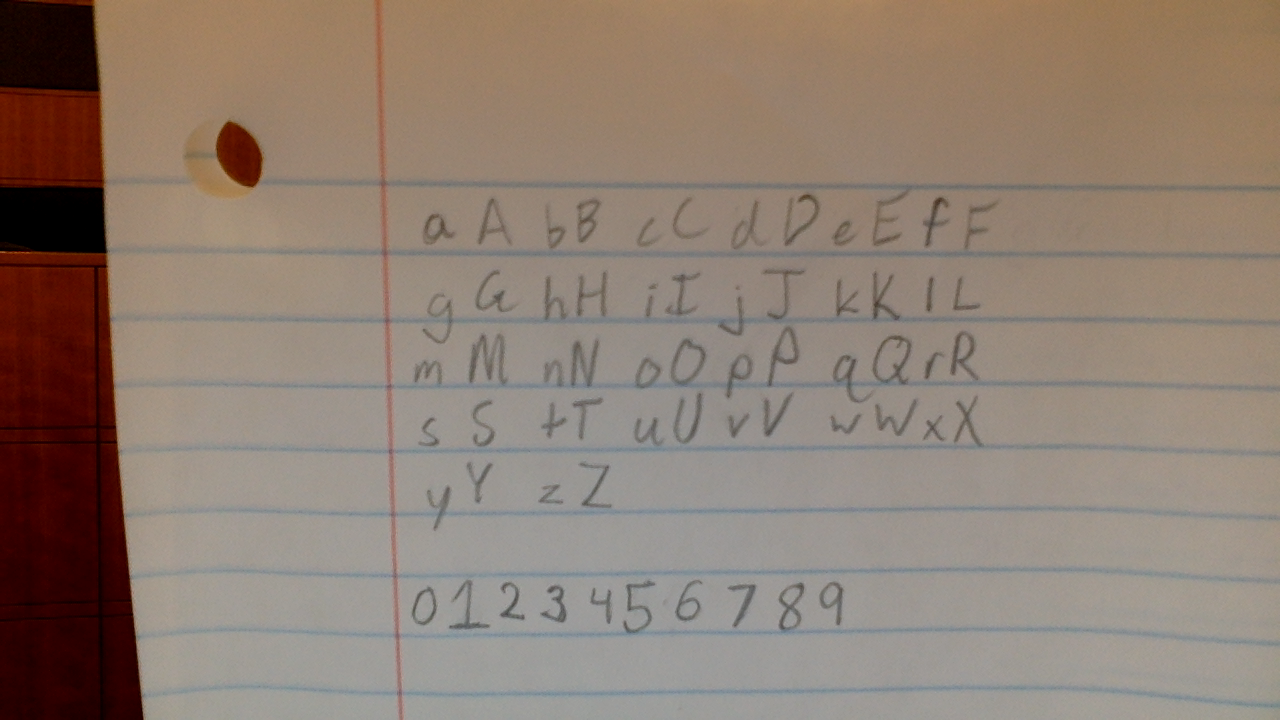 a A bB cC dD eE fF
g G hH iI jJ kK lL
m M nN oO pP qQ rR
s S tT uU vV wW xX
yY zZ
0 1 2 3 4 5 6 7 8 9